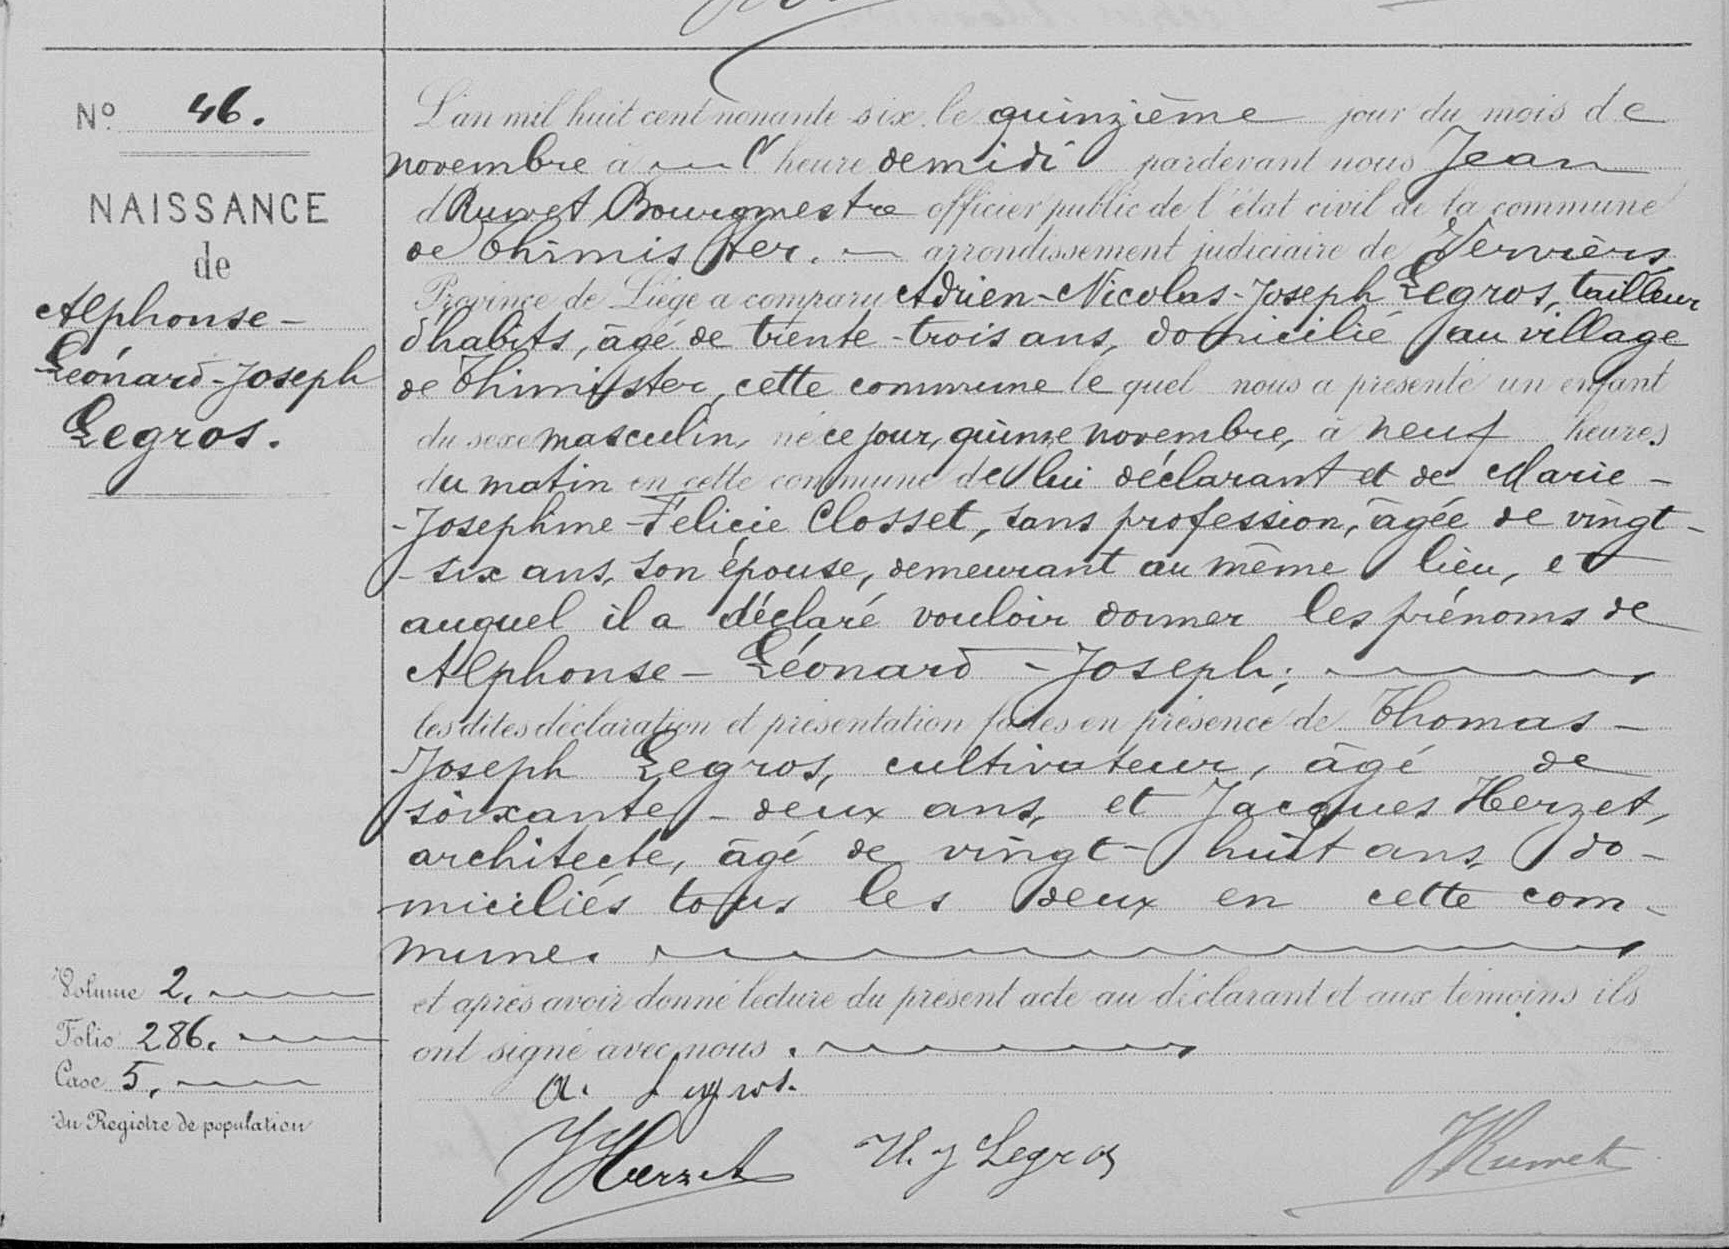 N° 46.
NAISSANCE
de
Alphonse-
Léonard-Joseph
Legros.
Volume 2.
Folio 286.
Case 5.
du Registre de population
L'an mil huit cent nonante-six, le quinzième jour du mois de
novembre à heure de midi pardevant nous Jean
Ruwet Bourgmestre officier public de l'état civil de la commune
de Thimister. arrondissement judiciaire de Verviers
Province de Liége a comparu Adrien-Nicolas-Joseph Legros, tailleur
d'habits, âgé de trente-trois ans, domicilié au village
de Thimister, cette commune lequel nous a présenté un enfant
du sexe masculin, né ce jour, quinze novembre, à neuf heures
du matin en cette commune de lui déclarant et de Marie-
-Josephine-Felicie Closset, sans profession, âgée de vingt-
-six ans, son épouse, demeurant au même lieu, et
auquel il a déclaré vouloir donner les prénoms de
Alphonse-Léonard-Joseph;
les dites déclaration et présentation faites en présence de Thomas-
Joseph Legros, cultivateur, âgé de
soixante-deux ans, et Jacques Herzet,
architecte, âgé de vingt-huit ans, do-
miciliés tous les deux en cette com-
mune.
et après avoir donné lecture du présent acte au déclarant et aux témoins ils
ont signé avec nous.
A. Legros.
JHerzet J Legros JRuwet